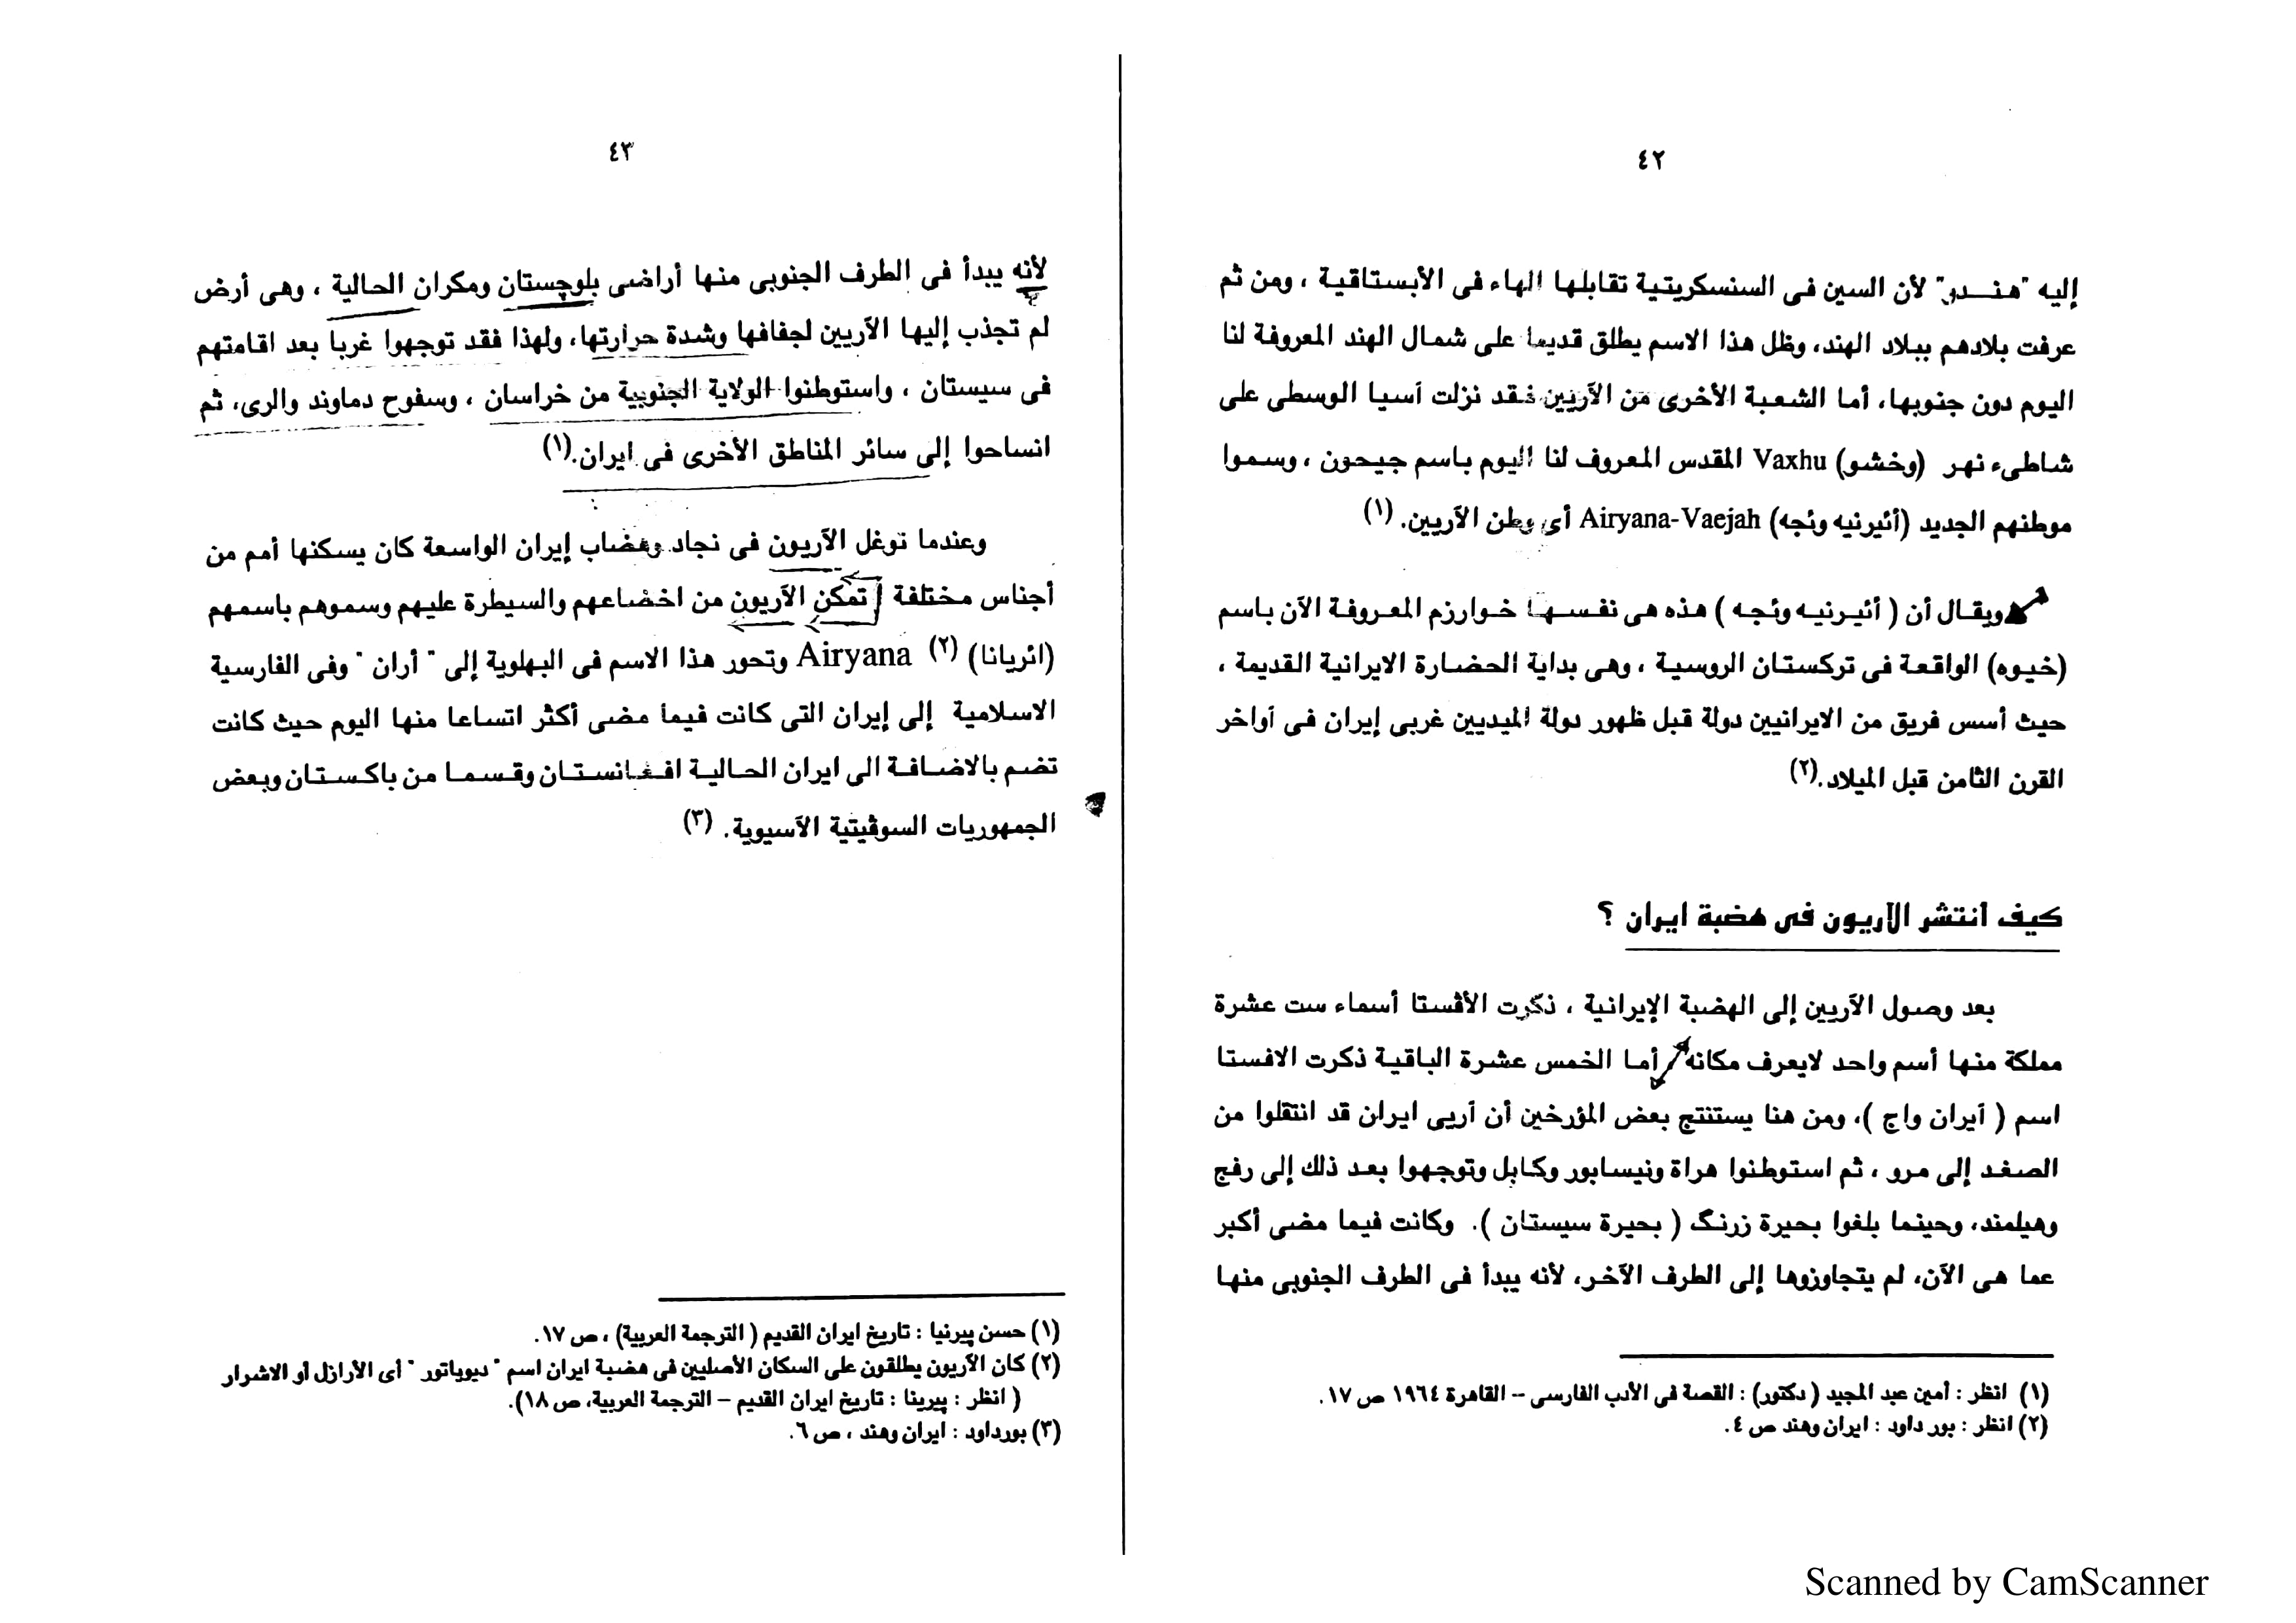 ٤٢
إليه "هندو" لأن السين فى السنسكريتية تقابلها الهاء فى الأبستاقية ، ومن ثم
عرفت بلادهم ببلاد الهند، وظل هذا الاسم يطلق قديما على شمال الهند المعروفة لنا
اليوم دون جنوبها، أما الشعبة الأخرى من الآريين فقد نزلت آسيا الوسطى على
شاطىء نهر (وخشو) Vaxhu المقدس المعروف لنا اليوم باسم جيحون ، وسموا
موطنهم الجديد (أئيرنيه وئجه) Airyana-Vaejah أى وطن الآريين. (١)
ويقال أن ( أئيرنيه وئجه ) هذه هى نفسها خوارزم المعروفة الآن باسم
(خيوه) الواقعة فى تركستان الروسية ، وهى بداية الحضارة الايرانية القديمة ،
حيث أسس فريق من الايرانيين دولة قبل ظهور دولة الميديين غربى إيران فى أواخر
القرن الثامن قبل الميلاد.(٢)
كيف انتشر الآريون فى هضبة ايران ؟
بعد وصول الآريين إلى الهضبة الإيرانية ، ذكرت الأفستا أسماء ست عشرة
مملكة منها أسم واحد لايعرف مكانه، أما الخمس عشرة الباقية ذكرت الافستا
اسم ( آيران واج )، ومن هنا يستنتج بعض المؤرخين أن آريى ايران قد انتقلوا من
الصغد إلى مرو ، ثم استوطنوا هراة ونيسابور وكابل وتوجهوا بعد ذلك إلى رفج
وهيلمند، وحينما بلغوا بحيرة زرنگ ( بحيرة سيستان ). وكانت فيما مضى أكبر
عما هى الآن، لم يتجاوزوها إلى الطرف الآخر، لأنه يبدأ فى الطرف الجنوبى منها
(١) انظر : أمين عبد المجيد ( دكتور) : القصة فى الأدب الفارسى – القاهرة ١٩٦٤ ص ١٧.
(٢) انظر : بور داود : ايران وهند ص ٤.
٤٣
لأنه يبدأ فى الطرف الجنوبى منها أراضى بلوچستان ومكران الحالية ، وهى أرض
لم تجذب إليها الآريين لجفافها وشدة حرارتها، ولهذا فقد توجهوا غربا بعد اقامتهم
فى سيستان ، واستوطنوا الولاية الجنوبية من خراسان ، وسفوح دماوند والرى، ثم
انساحوا إلى سائر المناطق الأخرى فى ايران.(١)
وعندما توغل الآريون فى نجاد وهضاب إيران الواسعة كان يسكنها أمم من
أجناس مختلفة تمكن الآريون من اخضاعهم والسيطرة عليهم وسموهم باسمهم
(ائريانا) (٢) Airyana وتحور هذا الاسم فى البهلوية إلى " أران " وفى الفارسية
الاسلامية إلى إيران التى كانت فيما مضى أكثر اتساعا منها اليوم حيث كانت
تضم بالاضافة الى ايران الحالية افغانستان وقسما من باكستان وبعض
الجمهوريات السوڤيتية الآسيوية. (٣)
(١) حسن پيرنيا : تاريخ ايران القديم ( الترجمة العربية) ، ص ١٧.
(٢) كان الآريون يطلقون على السكان الأصليين فى هضبة ايران اسم " ديوياتور " أى الأرازل أو الاشرار
( انظر : پيرينا : تاريخ ايران القديم – الترجمة العربية، ص ١٨).
(٣) بورداود : ايران وهند ، ص ٦.
Scanned by CamScanner